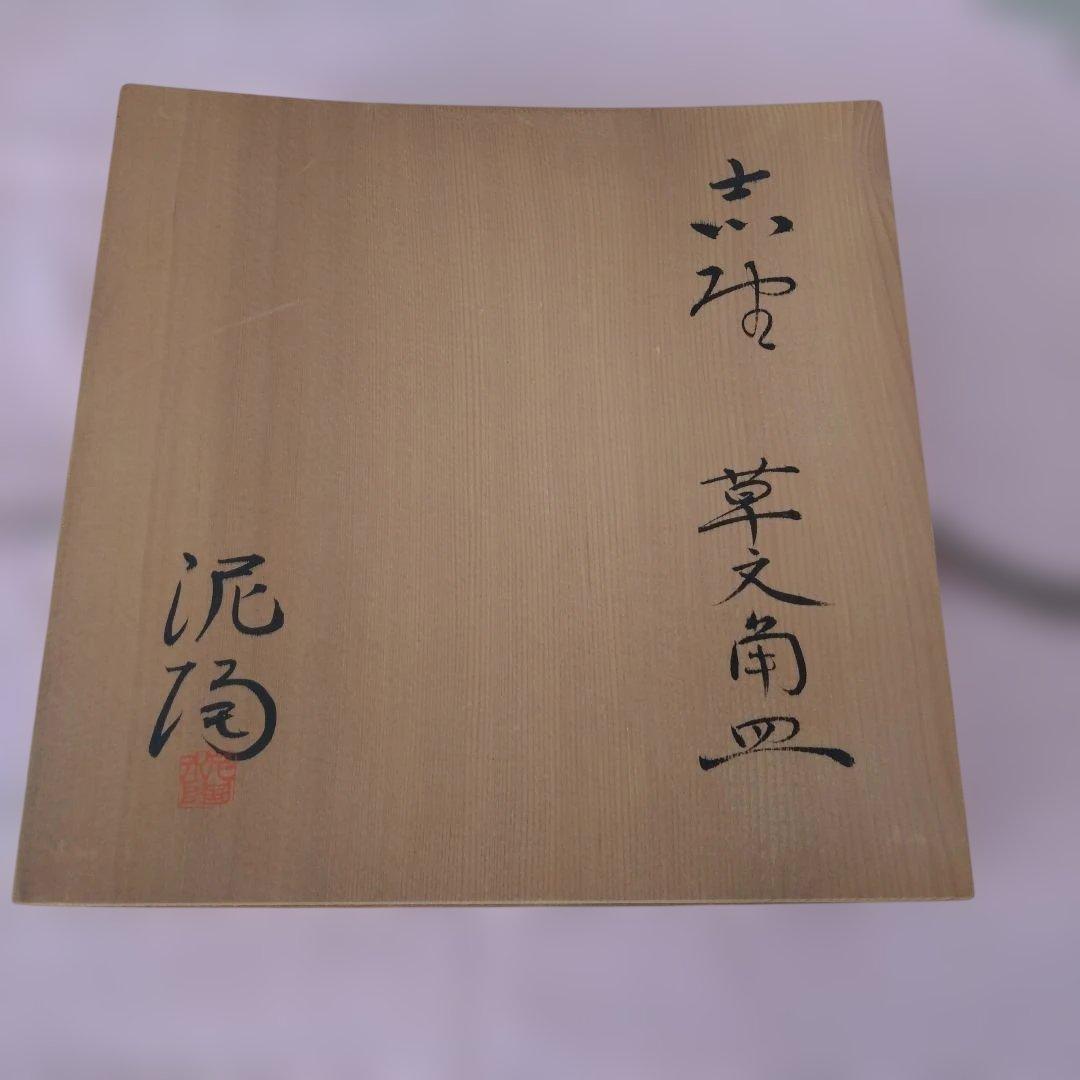 志野 草文角皿
泥陶